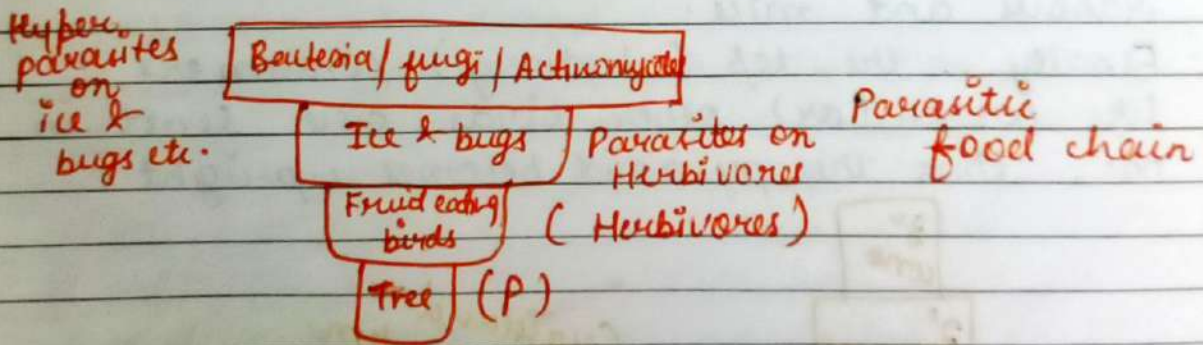 Hyper.
parasites
on
ice &
bugs etc.
Bacteria/fungi/Actinomycetes
Ice & bugs
Parasites on
Herbivores
Parasitic
food chain
Fruid eating
birds
(Herbivores)
Tree
(P)